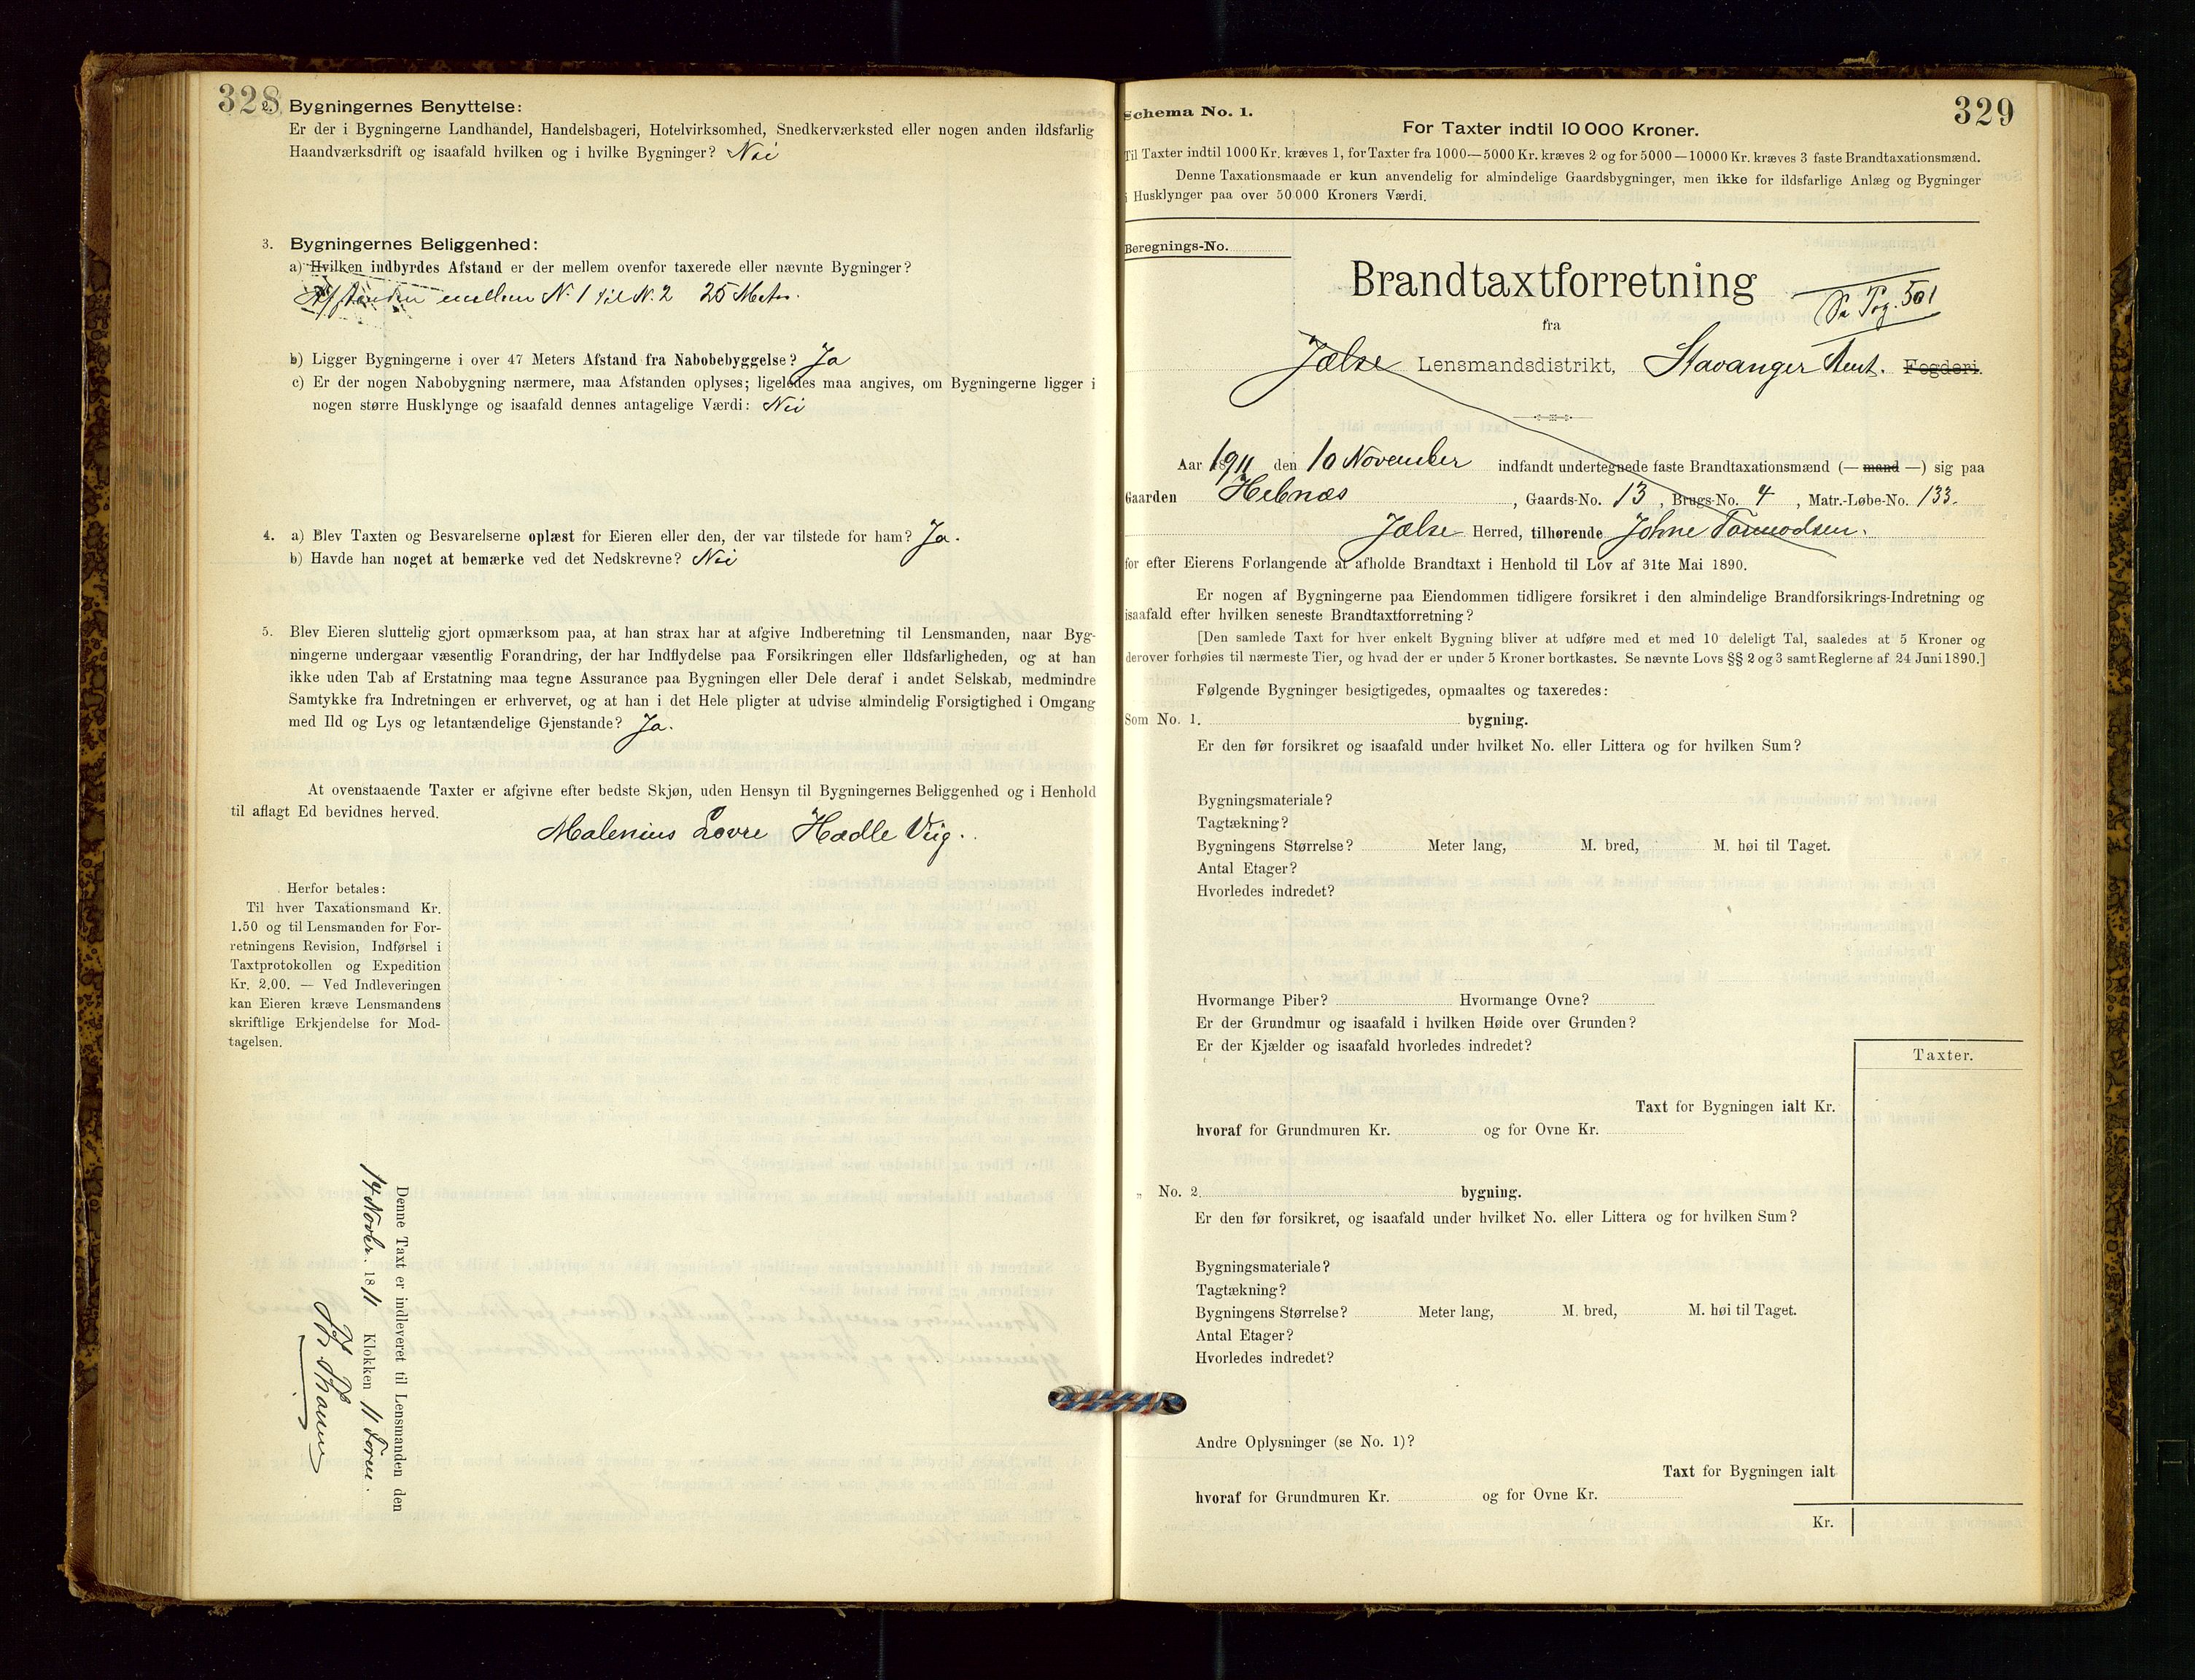 328
2. Bygningernes Benyttelse:
Er der i Bygningerne Landhandel, Handelsbageri, Hotelvirksomhed, Snedkerværksted eller nogen anden ildsfarlig
Haandværksdrift og isaafald hvilken og i hvilke Bygninger? Nei
3. Bygningernes Beliggenhed:
a) Hvilken indbyrdes Afstand er der mellem ovenfor taxerede eller nævnte Bygninger?
Afstanden mellem N. 1 til N. 2 25 Meter.
b) Ligger Bygningerne i over 47 Meters Afstand fra Nabobebyggelse? Ja
c) Er der nogen Nabobygning nærmere, maa Afstanden oplyses; ligeledes maa angives, om Bygningerne ligger i
nogen større Husklynge og isaafald dennes antagelige Værdi: Nei
4. a) Blev Taxten og Besvarelserne oplæst for Eieren eller den, der var tilstede for ham? Ja.
b) Havde han noget at bemærke ved det Nedskrevne? Nei
5. Blev Eieren sluttelig gjort opmærksom paa, at han strax har at afgive Indberetning til Lensmanden, naar Byg-
ningerne undergaar væsentlig Forandring, der har Indflydelse paa Forsikringen eller Ildsfarligheden, og at han
ikke uden Tab af Erstatning maa tegne Assurance paa Bygningen eller Dele deraf i andet Selskab, medmindre
Samtykke fra Indretningen er erhvervet, og at han i det Hele pligter at udvise almindelig Forsigtighed i Omgang
med Ild og Lys og letantændelige Gjenstande? Ja.
At ovenstaaende Taxter er afgivne efter bedste Skjøn, uden Hensyn til Bygningernes Beliggenhed og i Henhold
til aflagt Ed bevidnes herved.
Malenius Lovre Hadle Viig.
Herfor betales:
Til hver Taxationsmand Kr.
1.50 og til Lensmanden for For-
retningens Revision, Indførsel i
Taxtprotokollen og Expedition
Kr. 2.00. — Ved Indleveringen
kan Eieren kræve Lensmandens
skriftlige Erkjendelse for Mod-
tagelsen.
Denne Taxt er indleveret til Lensmanden den
14 Novbr. 1811 Klokken 11 Form.
329
Schema No. 1.
For Taxter indtil 10 000 Kroner.
Til Taxter indtil 1000 Kr. kræves 1, for Taxter fra 1000—5000 Kr. kræves 2 og for 5000—10000 Kr. kræves 3 faste Brandtaxationsmænd.
Denne Taxationsmaade er kun anvendelig for almindelige Gaardsbygninger, men ikke for ildsfarlige Anlæg og Bygninger
i Husklynger paa over 50 000 Kroners Værdi.
Beregnings-No.
Brandtaxtforretning
Se Pag. 501
fra
Jælse Lensmandsdistrikt, Stavanger Amt. Fogderi.
Aar 1911 den 10 November indfandt undertegnede faste Brandtaxationsmænd (— mand —) sig paa
Gaarden Hebnæs, Gaards-No. 13, Brugs-No. 4, Matr.-Løbe-No. 133.
Jælse Herred, tilhørende Johne Tormodsen.
for efter Eierens Forlangende at afholde Brandtaxt i Henhold til Lov af 31te Mai 1890.
Er nogen af Bygningerne paa Eiendommen tidligere forsikret i den almindelige Brandforsikrings-Indretning og
isaafald efter hvilken seneste Brandtaxtforretning?
[Den samlede Taxt for hver enkelt Bygning bliver at udføre med et med 10 deleligt Tal, saaledes at 5 Kroner og
derover forhøies til nærmeste Tier, og hvad der er under 5 Kroner bortkastes. Se nævnte Lovs §§ 2 og 3 samt Reglerne af 24 Juni 1890.]
Følgende Bygninger besigtigedes, opmaaltes og taxeredes:
Som No. 1. bygning.
Er den før forsikret og isaafald under hvilket No. eller Littera og for hvilken Sum?
Bygningsmateriale?
Tagtækning?
Bygningens Størrelse? Meter lang, M. bred, M. høi til Taget.
Antal Etager?
Hvorledes indredet?
Hvormange Piber? Hvormange Ovne?
Er der Grundmur og isaafald i hvilken Høide over Grunden?
Er der Kjælder og isaafald hvorledes indredet?
Taxter.
Taxt for Bygningen ialt Kr.
hvoraf for Grundmuren Kr. og for Ovne Kr.
„ No. 2. bygning.
Er den før forsikret, og isaafald under hvilket No. eller Littera og for hvilken Sum?
Bygningsmateriale?
Tagtækning?
Bygningens Størrelse? Meter lang, M. bred, M. høi til Taget.
Antal Etager?
Hvorledes indredet?
Andre Oplysninger (se No. 1)?
Taxt for Bygningen ialt
hvoraf for Grundmuren Kr. og for Ovne Kr.
Kr.